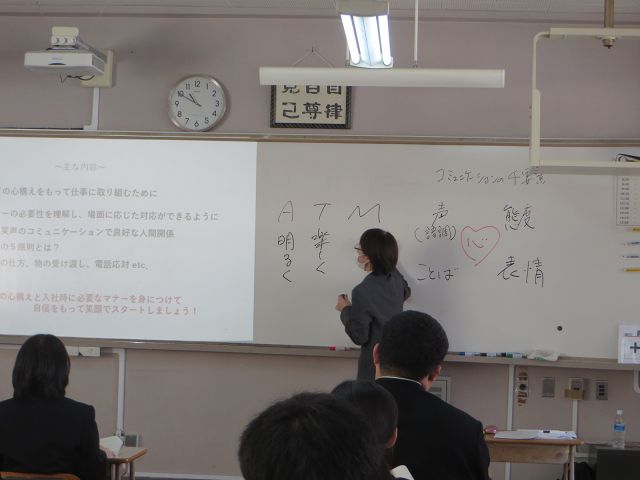 自律
自尊
～主な内容～
の心構えをもって仕事に取り組むために
ーの必要性を理解し、場面に応じた対応ができるように
笑声のコミュニケーションで良好な人間関係
の５原則とは？
の仕方、物の受け渡し、電話応対 etc.
の心構えと入社時に必要なマナーを身につけて
自信をもって笑顔でスタートしましょう！
A T M
明るく
楽しく
コミュニケーションの4要素
声
態度
ことば
表情